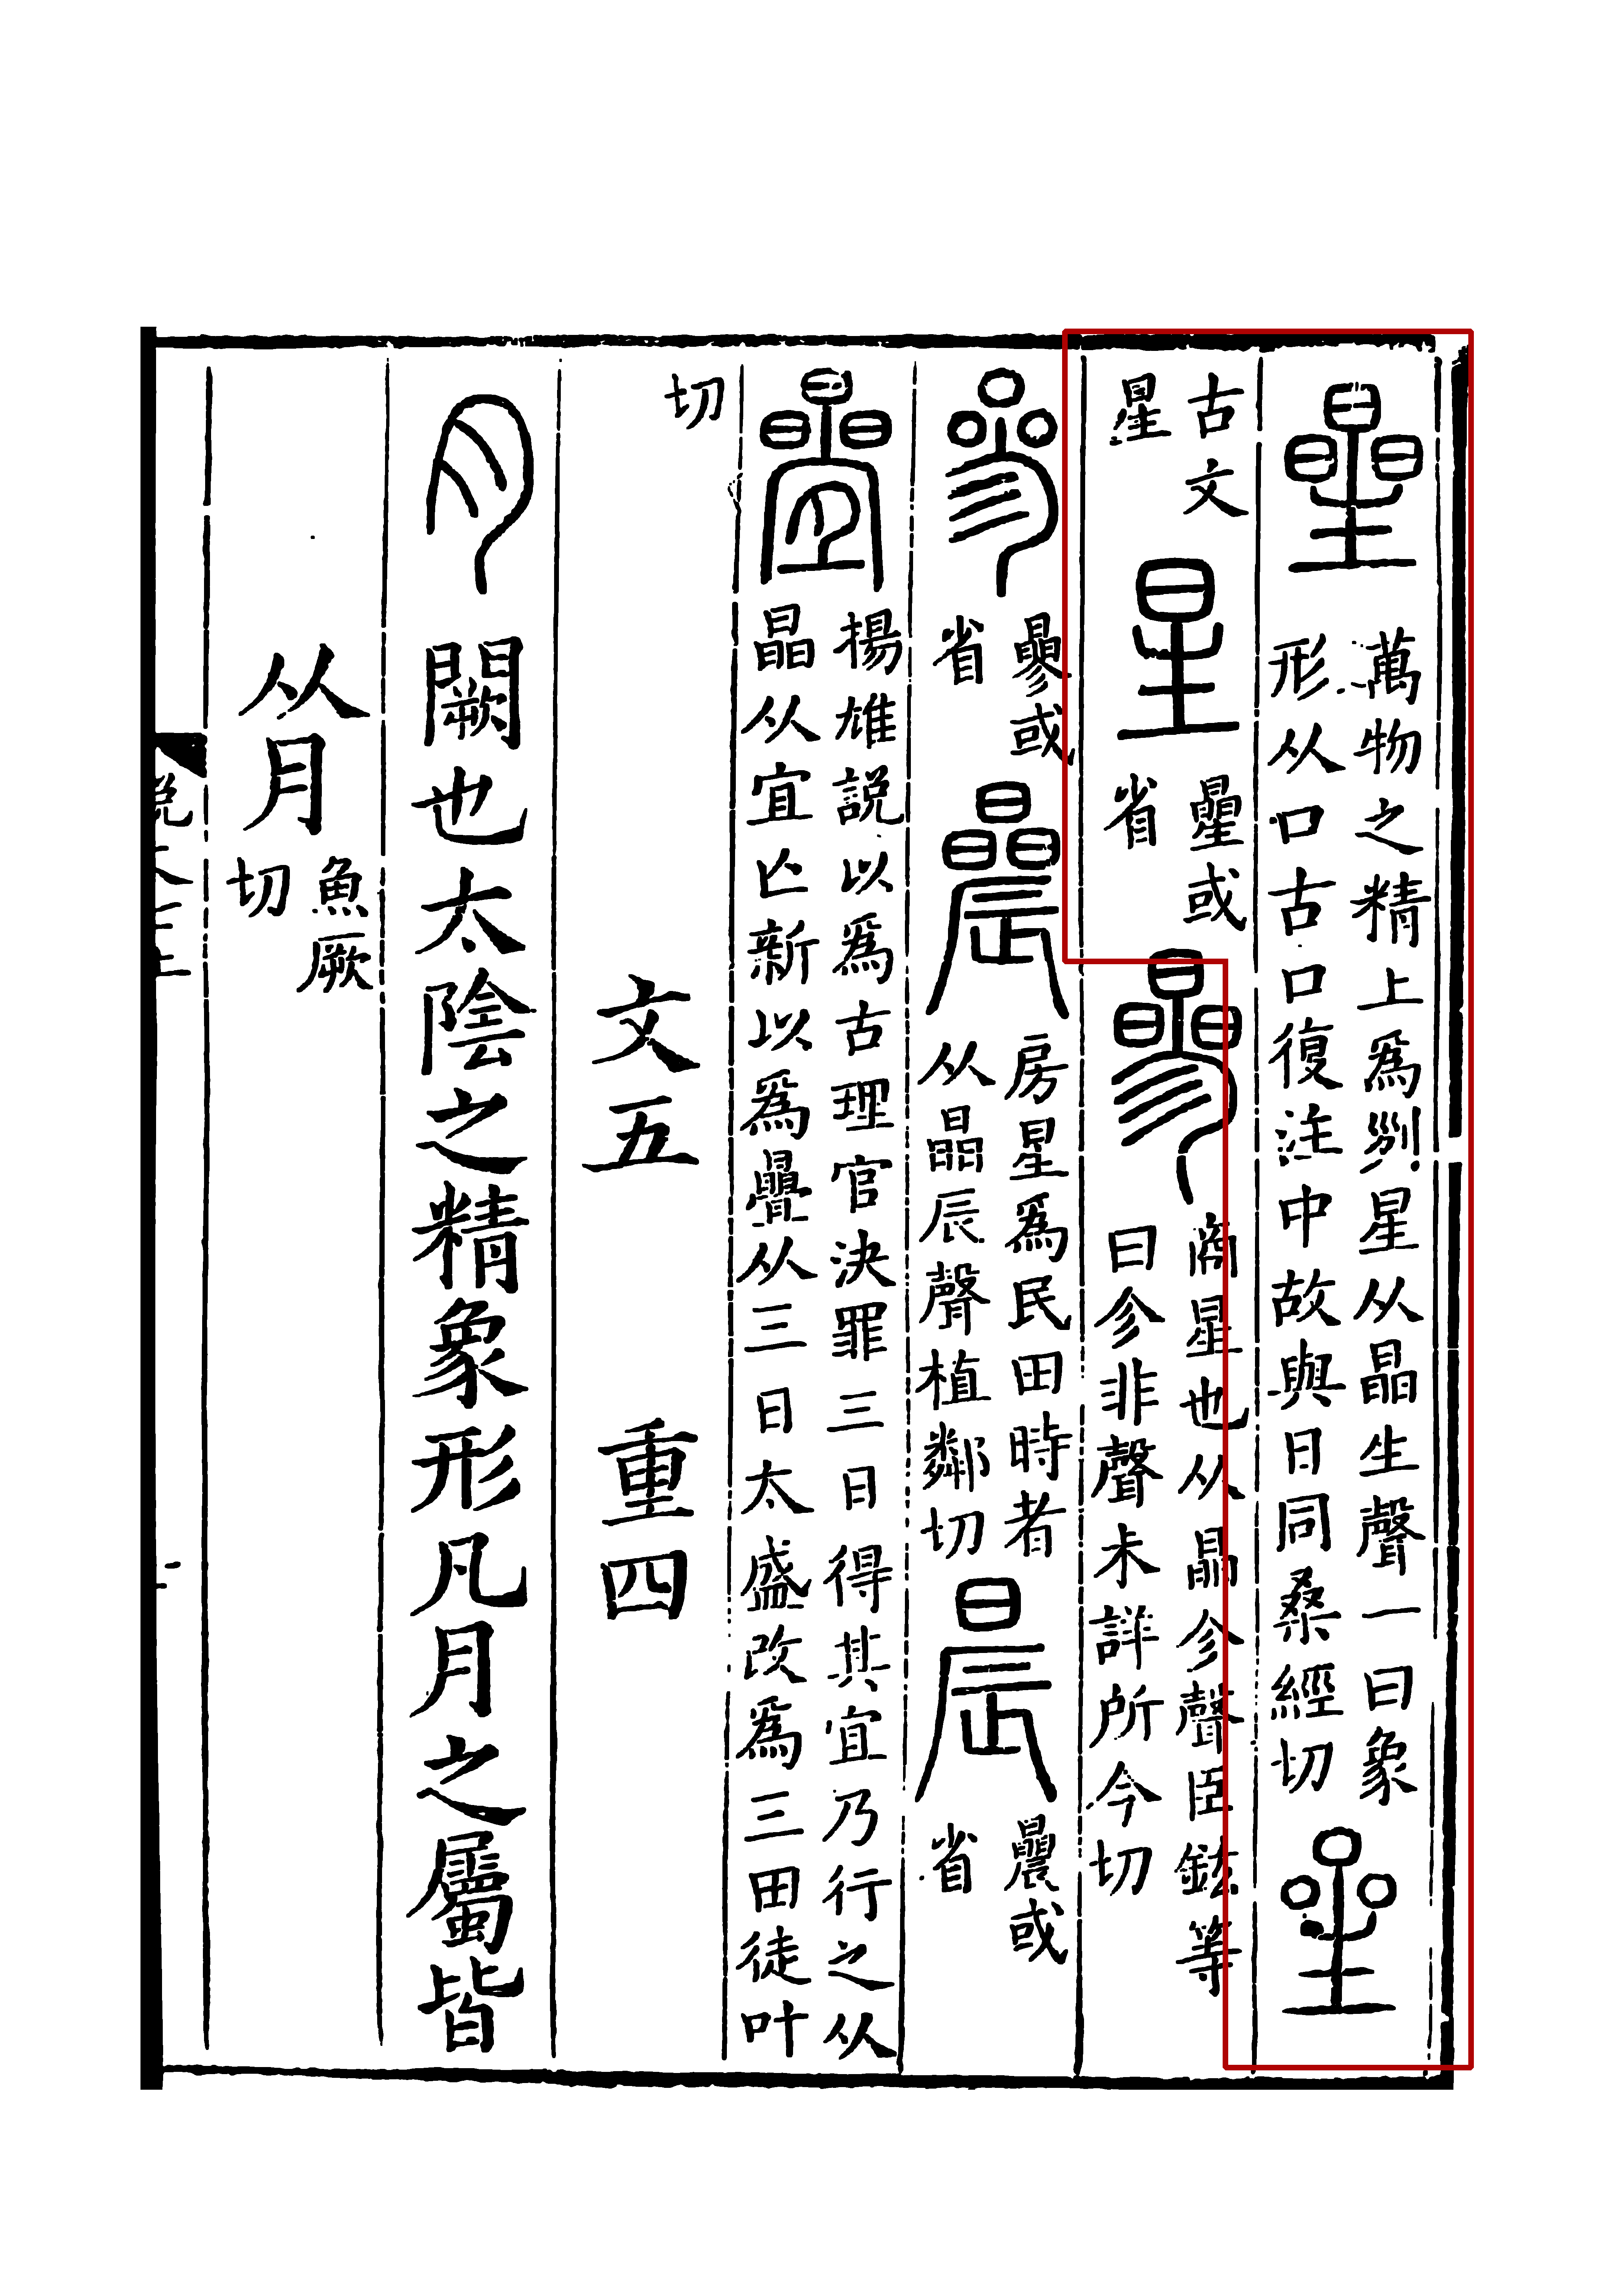 曐萬物之精上爲列星从晶生聲一曰象
形从口古口復注中故與日同桑經切曐
古文
星星曑或
省曑商星也从晶㐱聲臣鉉等
曰㐱非聲未詳所今切
曑曑或
省曟房星爲民田時者
从晶辰聲植鄰切晨曟或
省
疊揚雄説以爲古理官決罪三日得其宜乃行之从
晶从宜亡新以爲疊从三日太盛改爲三田徒叶
切
文五 重四
月闕也太陰之精象形凡月之屬皆
从月魚厥
切